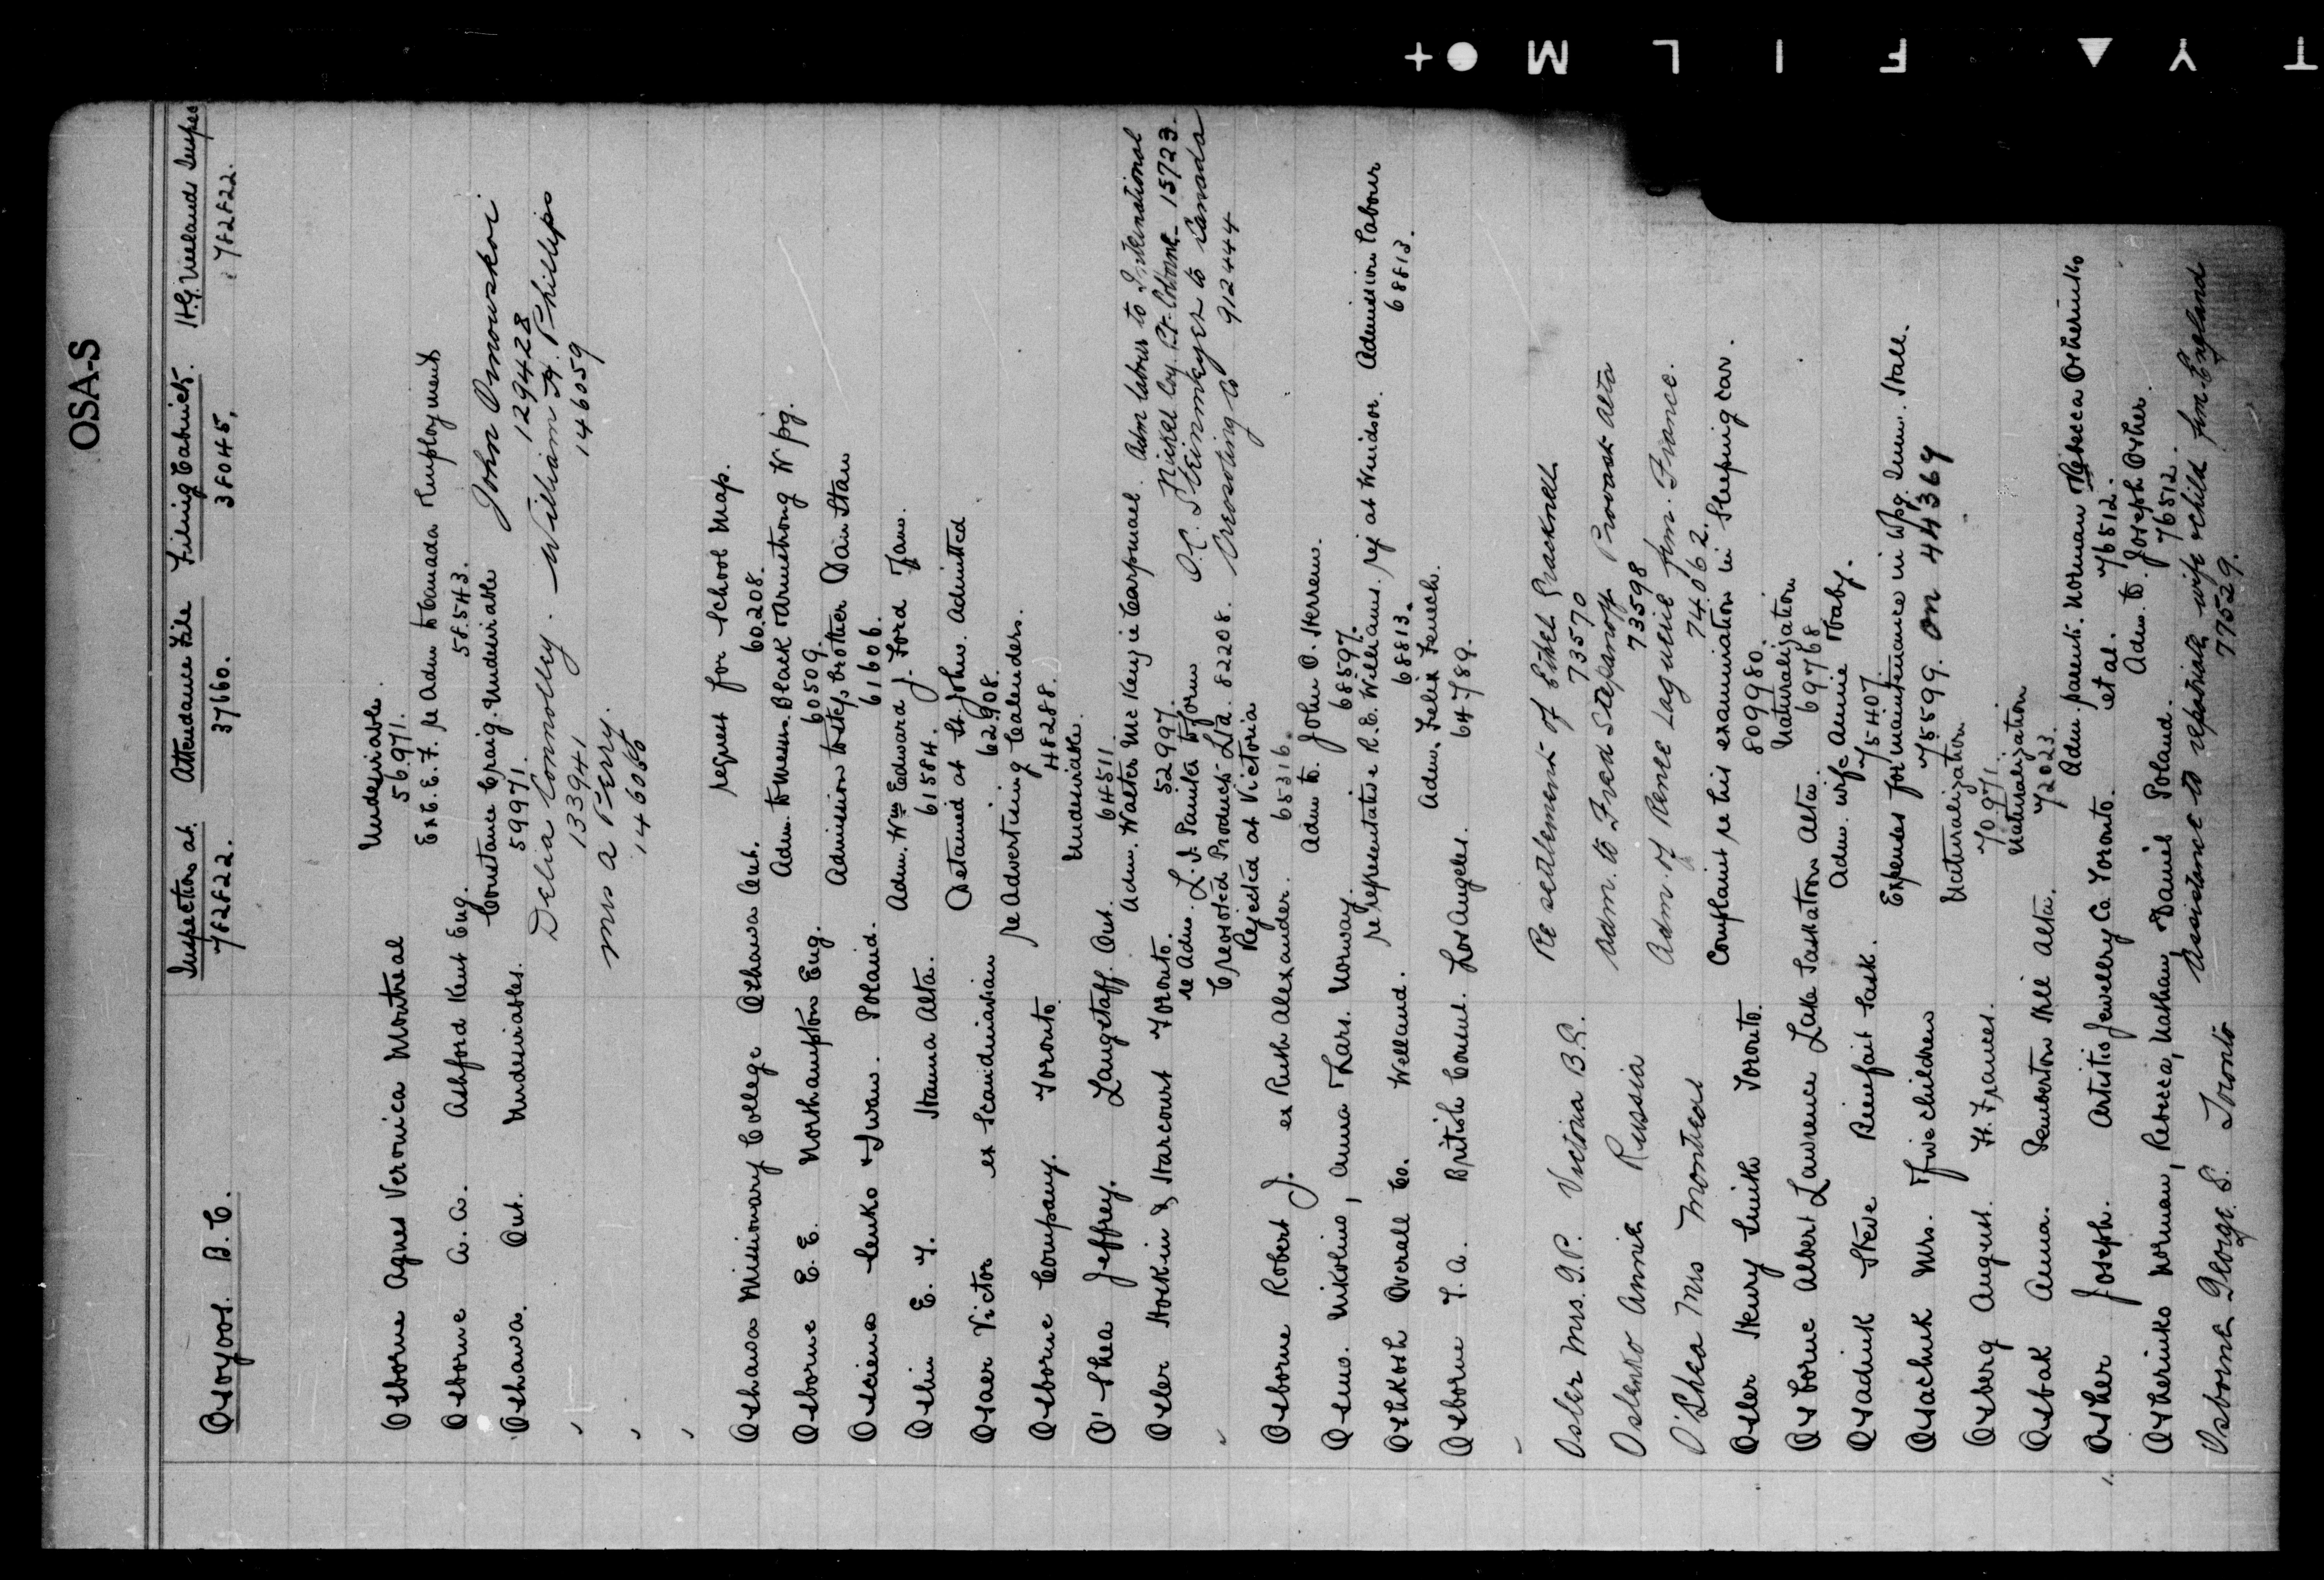 OSA-S
Osoyoos. B.C. Inspection at. Attendance File Filing Cabinet.
782822. 37660. 38045. 782822.
Osborne Agnes Veronica Montreal Undesirable.
56971.
Osborne A. A. Ashford Kent Eng. Ex C.E.F. re Adm to Canada Employment
58543.
Oshawa. Ont. Undesirables. Constance Craig. Undesirable
59971.
John Osmowskoi
129428
Delia Connolley. William A. Phillips
133941 146059
Mrs A Perry.
146066
Oshawa Missionary College Oshawa Ont. request for School Map.
60208.
Osborne E. E. Northampton Eng. Adm. to Messrs. Black & Armstrong Wpg.
60509.
Osciena Senko & Iwan. Poland. Admission to step brother Dan Staw
61606.
Oslin E. T. Hanna Alta. Adm. Wm Edward J. Ford Fam.
61584.
Osaer Victor ex Scandinavian Detained at St. John. Admitted
62908.
Osborne Company. Toronto. re Advertising Calenders.
48288.
O'Shea Jeffrey. Langstaff. Ont. Undesirable.
64511.
Osler Hoskin & Harcourt Toronto. Adm. Walter McKenzie Carpmael. Adm labour to International
52997. Nickel Coy. Pt. Colborne 15723.
re Adm. L. J. Santer to form O.C. Steinmkyer to Canada
Creosoted Products Ltd. 82208. Creosoting Co 912444
Osborne Robert J. ex Ruth Alexander. Rejected at Victoria
65316.
Osmo. Nikolino, Anna & Lars. Norway. Adm to. John O. Skerrem.
68597.
Oshkosh Overall Co. Welland. re representative R. E. Williams. rej at Windsor. Admission Labour
68813. 68813.
Osborne T. A. British Consul. Los Angeles. Adm. Felix Fenech.
64789.
Osler Mrs. G. P. Victoria B.C. Re settlement of Ethel Gracknell
73570
Oslenko Annie Russia Adm. to Fred Stepanoff Provost Alta
73598
O'Shea Mrs Montreal Adm. of Renee Laguerie frm. France.
74062.
Osler Henry Smith Toronto. Complaint re his examination in Sleeping car.
809980.
Osborne Albert Lawrence Lake Saskatoon Alta. Naturalization
69768
Osadiuk Steve Rienfait Sask. Adm. wife Annie & baby.
75407.
Osachuk Mrs. & five children Expenses for maintenance in Wpg. Imm. Hall.
75599. on 44369
Osberg August. Ft. Frances. Naturalization.
70971.
Osbak Anna. Pemberton Hill Alta. Naturalization
72023.
Osher Joseph. Artistic Jewellery Co. Toronto. Adm. parents. Norman & Rebecca Osherinko
et al. 76512.
Osherinko Norman, Rebecca, Nathan & Daniel Poland. Adm. to. Joseph Osher.
76512.
Osborne George. S. Toronto Assistance to repatriate wife & child frm England
77529.